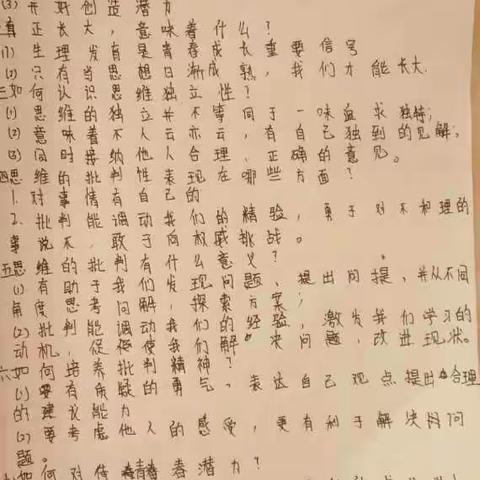 (3) 开新创造潜力
真正长大，意味着什么？
(1) 生理发育是青春成长重要信号
(2) 只有当思想日渐成熟，我们才能长大.
三如何认识思维独立性？
(1) 思维的独立并不等同于一味盲求独特；
(2) 意味着不人云亦云，有自己独到的见解；
(3) 同时接纳他人合理、正确的意见。
四思维的批判性表现在哪些方面？
1. 对事情有自己的
2. 批判能调动我们的精验，勇于对不相理的
事说不，敢于向权威挑战。
五思维的批判有什么意义？
(1) 有助于我们发现问题、提出问提，并从不同
角度思考问解，探索方案；
(2) 批判能调动我们的经验，激发我们学习的
动机，促使我们解决问题，改进现状。
六如何培养批判精神？
(1) 要有质疑的勇气，表达自己观点提出合理
的建议能力
(2) 要考虑他人的感受，更有利于解决问
题。
如何对待青春潜力？